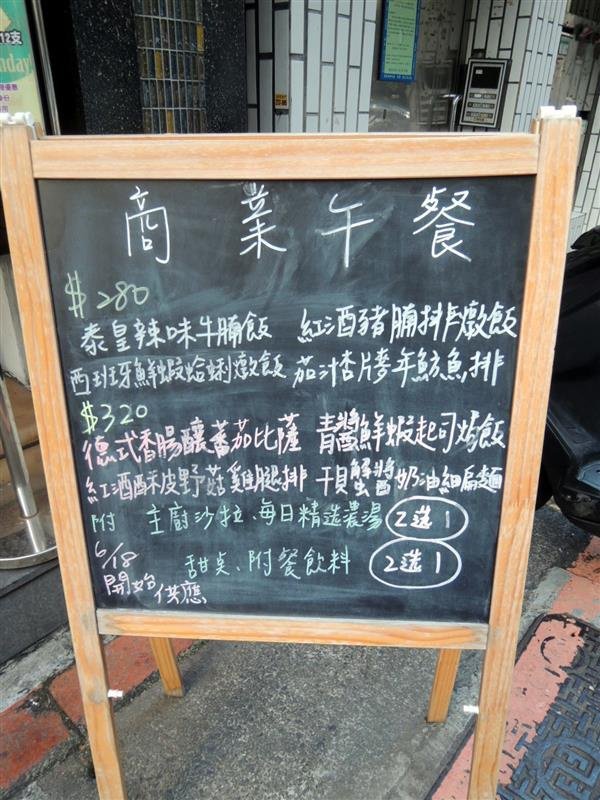 12支
nday
商業午餐
$280
泰皇辣味牛腩飯 紅酒豬腩排燉飯
西班牙鮮蝦蛤蜊燉飯 茄汁杏片烤年魴魚排
$320
德式香腸釀蕃茄比薩 青醬鮮蝦起司烤飯
紅酒酥皮野菇雞腿排 干貝蟹醬奶油細扁麵
附 主廚沙拉、每日精選濃湯 2選1
6/18 甜点、附餐飲料 2選1
開始供應